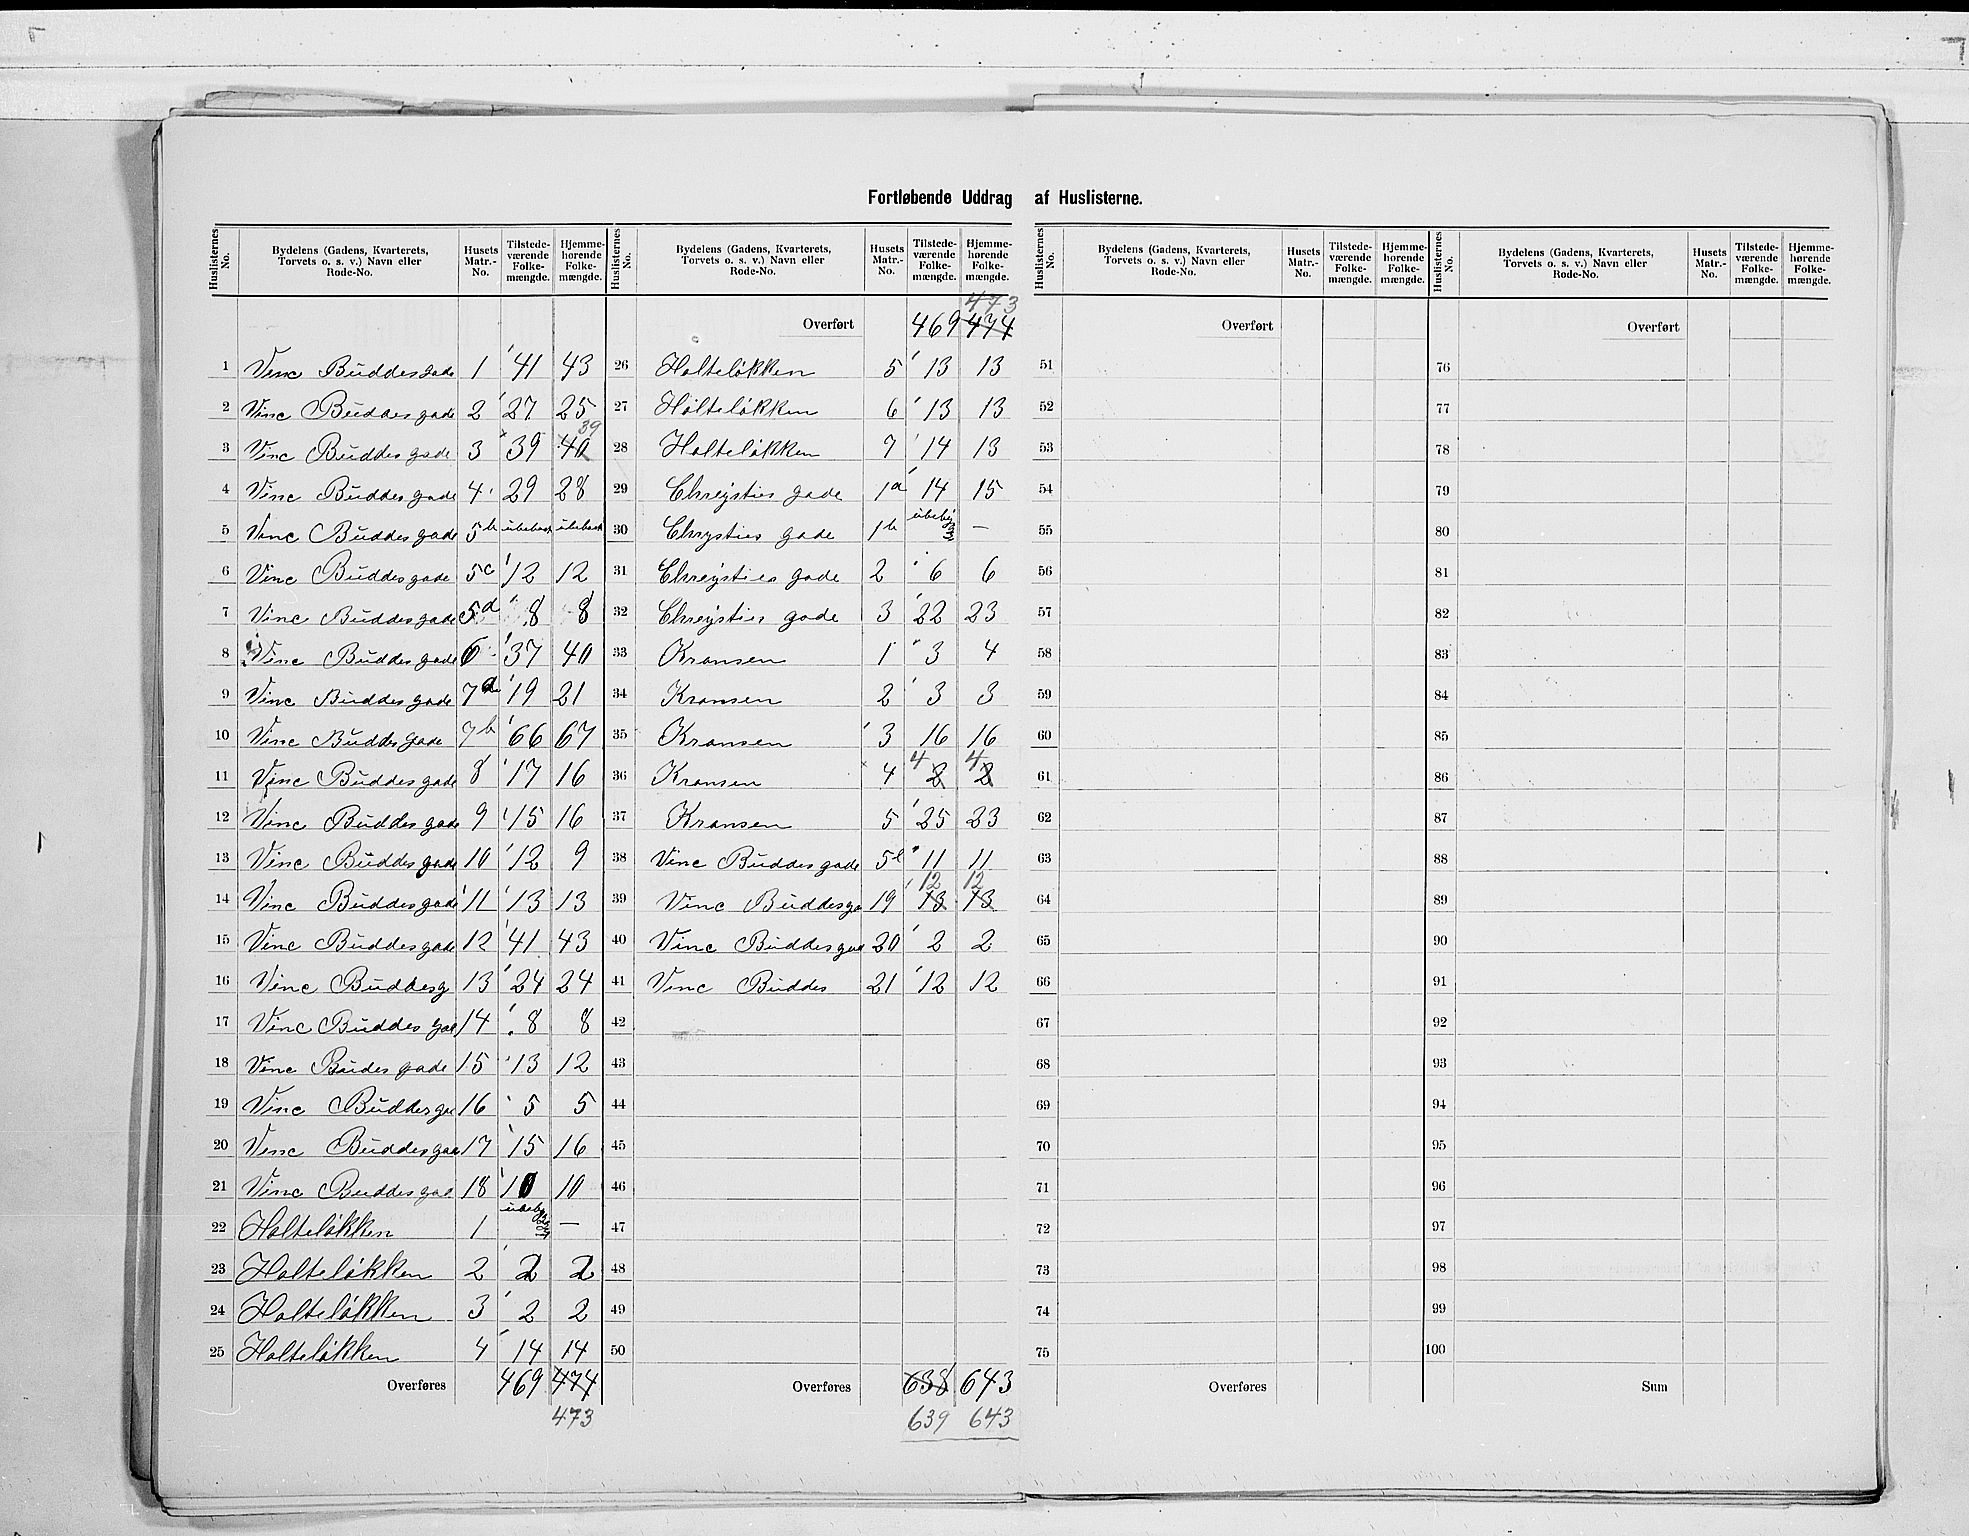 Fortløbende Uddrag af Huslisterne.
Huslisternes No. Bydelens (Gadens, Kvarterets, Torvets o. s. v.) Navn eller Rode-No. Husets Matr.-No. Tilstede-værende Folke-mængde. Hjemme-hørende Folke-mængde.
1 Vinc Buddesgade 1 41 43
2 Vinc Buddesgade 2 27 25
3 Vinc Buddesgade 3 39 40 39
4 Vinc Buddesgade 4 29 28
5 Vinc Buddesgade 5b ubebodt ubebodt
6 Vinc Buddesgade 5c 12 12
7 Vinc Buddesgade 5d 8 8
8 Vinc Buddesgade 6 37 40
9 Vinc Buddesgade 7a 19 21
10 Vinc Buddesgade 7b 66 67
11 Vinc Buddesgade 8 17 16
12 Vinc Buddesgade 9 15 16
13 Vinc Buddesgade 10 12 9
14 Vinc Buddesgade 11 13 13
15 Vinc Buddesgade 12 41 43
16 Vinc Buddesg 13 24 24
17 Vinc Buddes gae 14 8 8
18 Vinc Buddes gade 15 13 12
19 Vinc Buddesga 16 5 5
20 Vinc Buddesgaa 17 15 16
21 Vinc Buddesgad 18 10 10
22 Holteløkken 1 ubebygget —
23 Holteløkken 2 2 2
24 Holteløkken 3 2 2
25 Holteløkken 4 14 14
Overføres 469 474
473
Huslisternes No. Bydelens (Gadens, Kvarterets, Torvets o. s. v.) Navn eller Rode-No. Husets Matr.-No. Tilstede-værende Folke-mængde. Hjemme-hørende Folke-mængde.
473
Overført 469 474
26 Holteløkken 5 13 13
27 Holteløkken 6 13 13
28 Holteløkken 7 14 13
29 Chrÿsties gade 1a 14 15
30 Chrysties gade 1b ubebygget —
31 Chrÿsties gade 2 6 6
32 Chrÿsties gade 3 22 23
33 Kransen 1 3 4
34 Kransen 2 3 3
35 Kransen 3 16 16
36 Kransen 4 4 2 4 2
37 Kransen 5 25 23
38 Vinc Buddesgade 5e 11 11
39 Vinc Buddesga 19 12 13 12 13
40 Vinc Buddesgad 20 2 2
41 Vinc Buddes 21 12 12
42
43
44
45
46
47
48
49
50
Overføres 638 643
639 643
Huslisternes No. Bydelens (Gadens, Kvarterets, Torvets o. s. v.) Navn eller Rode-No. Husets Matr.-No. Tilstede-værende Folke-mængde. Hjemme-hørende Folke-mængde.
Overført
51
52
53
54
55
56
57
58
59
60
61
62
63
64
65
66
67
68
69
70
71
72
73
74
75
Overføres
Huslisternes No. Bydelens (Gadens, Kvarterets, Torvets o. s. v.) Navn eller Rode-No. Husets Matr.-No. Tilstede-værende Folke-mængde. Hjemme-hørende Folke-mængde.
Overført
76
77
78
79
80
81
82
83
84
85
86
87
88
89
90
91
92
93
94
95
96
97
98
99
100
Sum